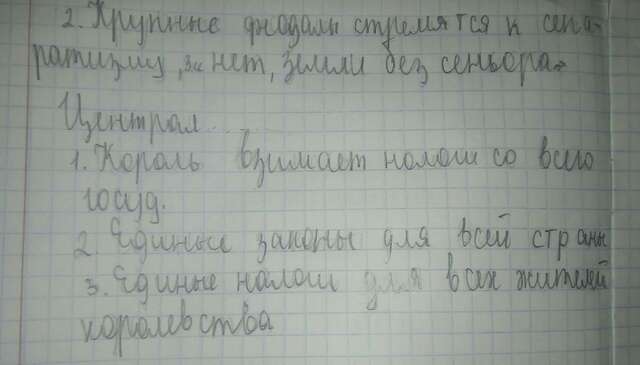 2. Крупные феодалы стремятся к сепа-
ратизму, "нет, земли без сеньора"
Централ...
1. Король взимает налоги со всего
госуд.
2. Единые законы для всей страны
3. Единые налоги для всех жителей
королевства